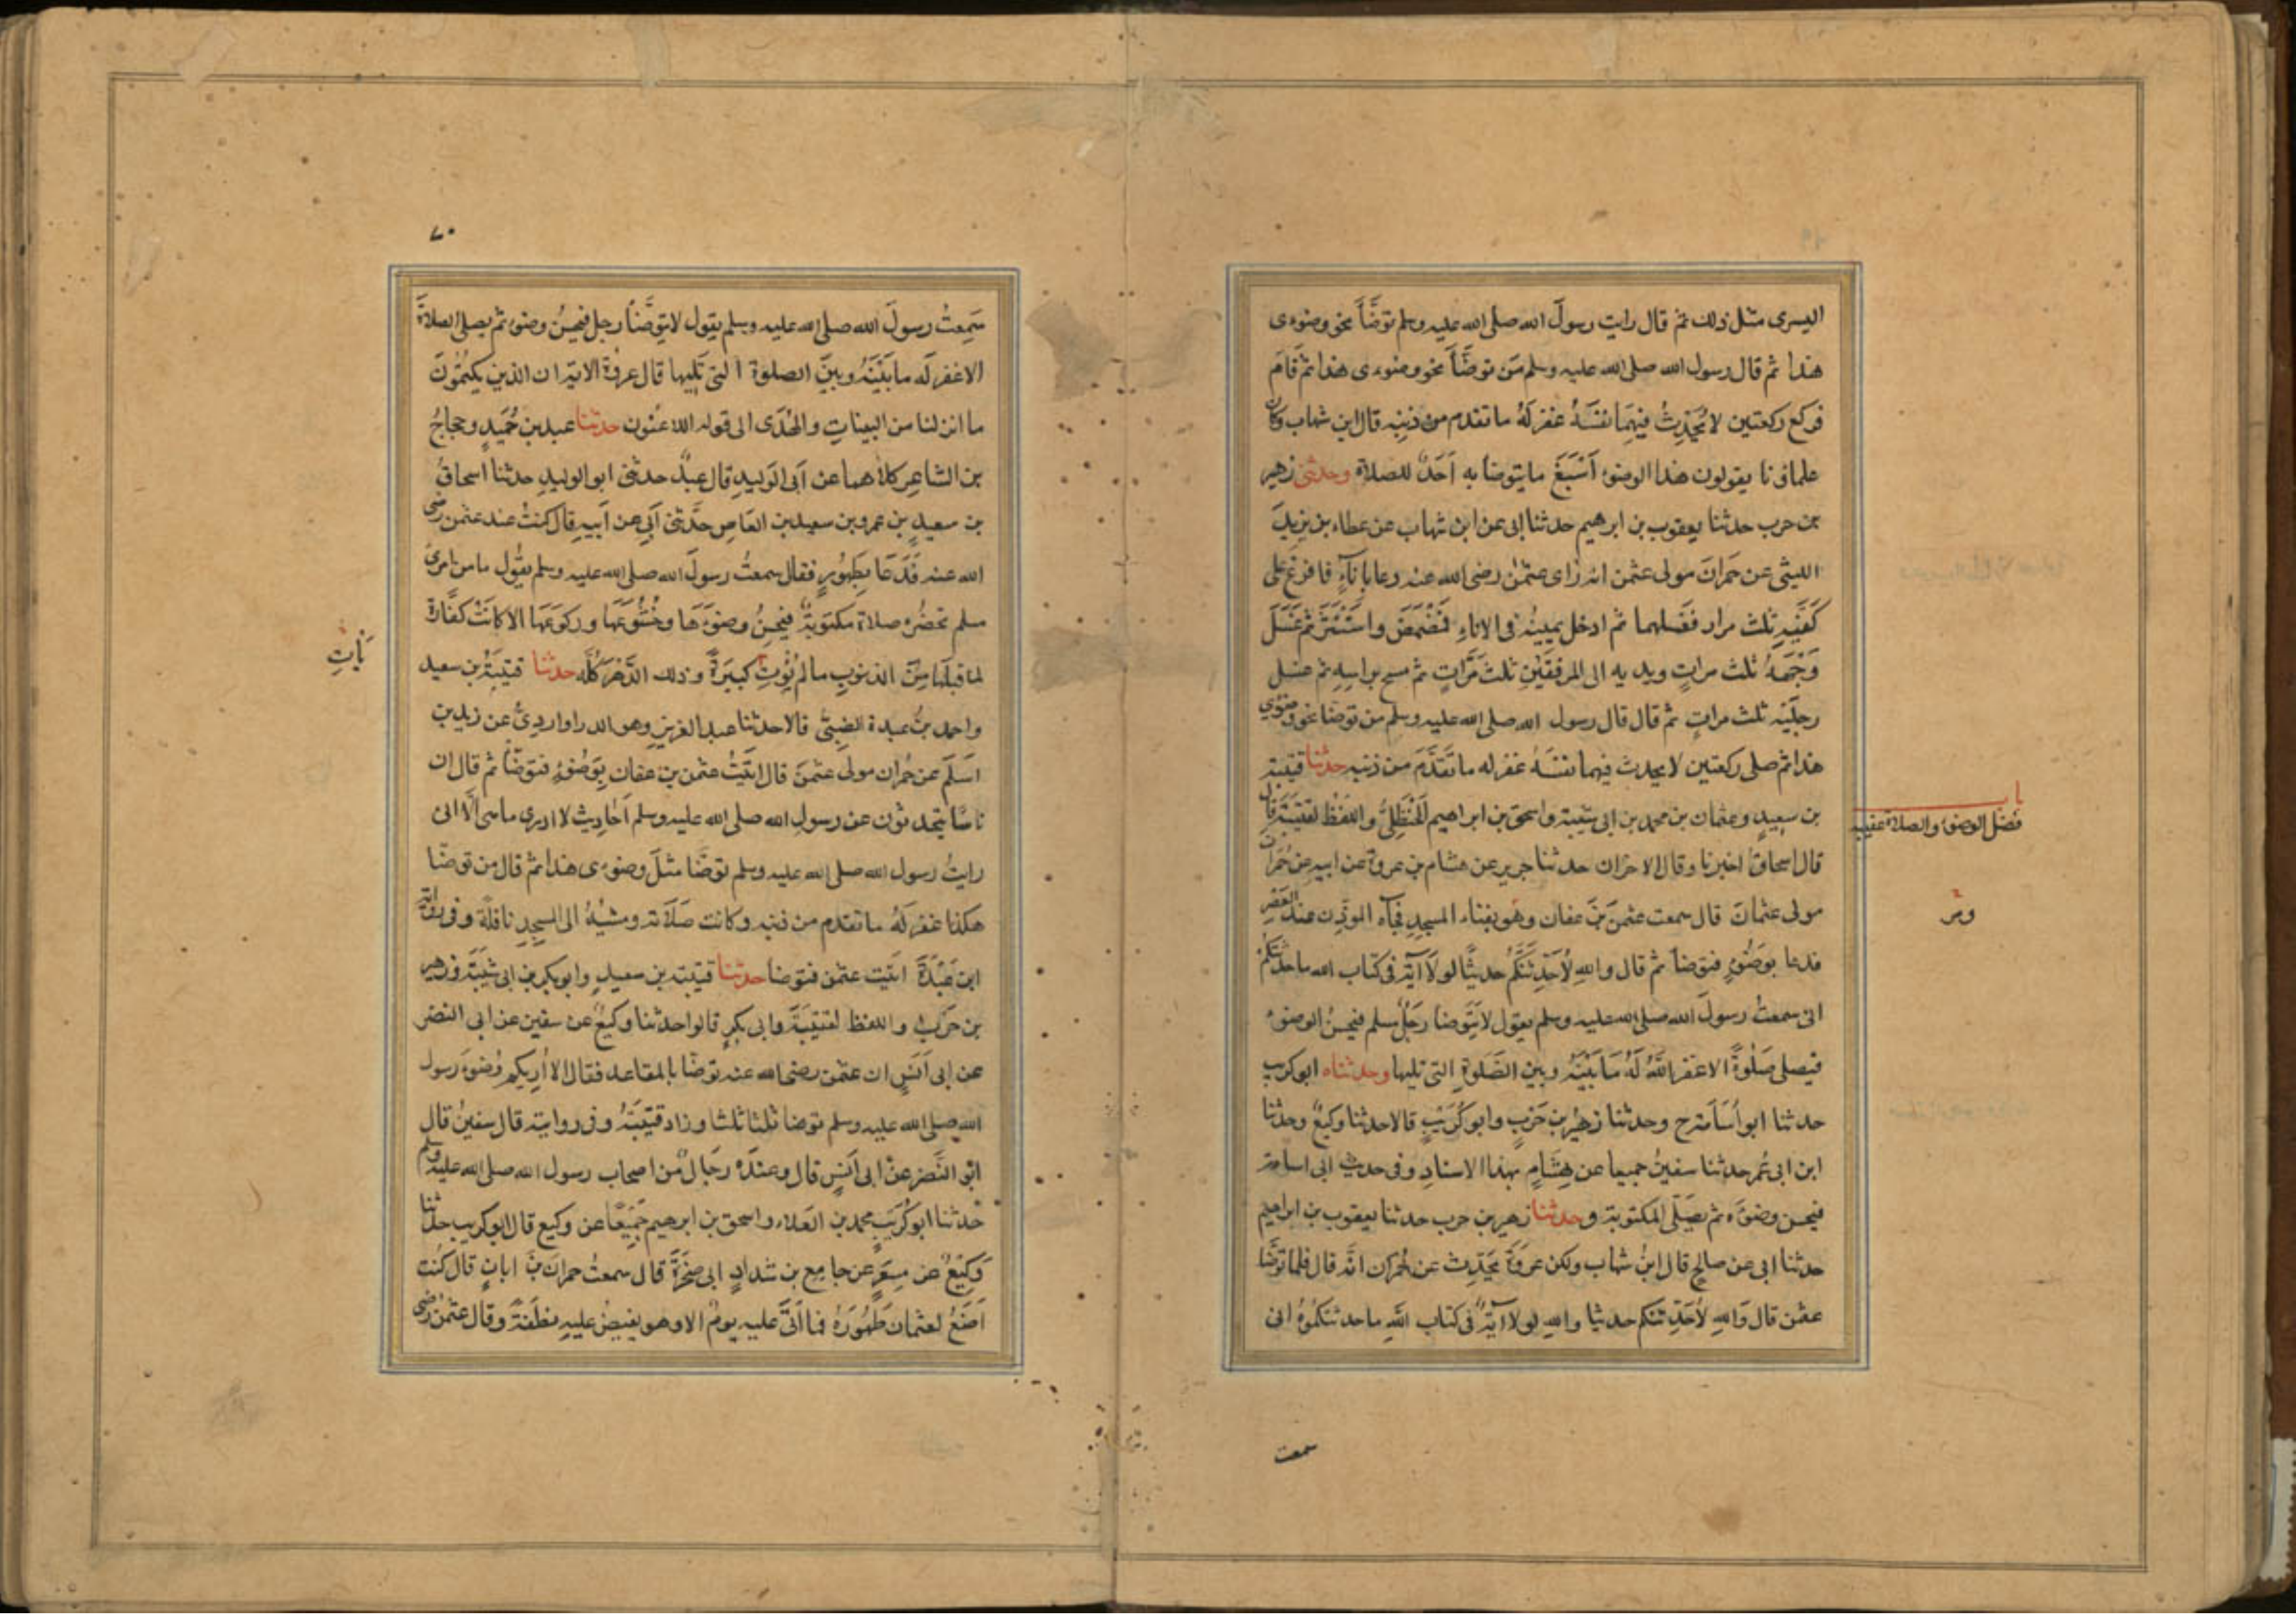 اليسرى مثل ذلك ثم قال رايت رسولَ الله صلى الله عليه وسلم توضَّأَ نحو وضوءى
هذا ثم قال رسول الله صلى الله عليه وسلم مَن توضَّأَ نحو وضوءى هذا ثم قَامَ
فركع ركعتين لا يُحَدِّثُ فيهِمَا نفسَهُ غفر لَهُ ما تقدم من ذنبِه قال ابن شهاب وكان
علماؤنا يقولون هذا الوضوءُ أَسْبَغُ ما يتوضأ به أَحَدٌ للصلاة وحدثنى زهير
بن حرب حدثنا يعقوب بن ابرهيم حدثنا ابى عن ابن شهاب عن عطاء بن يزيدَ
الليثى عن حمرانَ مولى عثمن انه رَاى عثمٰنَ رضى الله عنه دعا باناءٍ فافرغ على
كَفَّيهِ ثلث مرار فغسلهما ثم ادخل يمينهُ فى الاناءِ فَمَضْمَضَ واسْتَنْثَرَ ثم غَسَلَ
وَجْهَهُ ثلث مراتٍ ويديه الى المرفقَيْنِ ثلثَ مَرَّاتٍ ثم مسح براسِهِ ثم غسل
رجلَيْه ثلث مراتٍ ثم قال قال رسول الله صلى الله عليه وسلم من توضأ نحو وضوءي
هذا ثم صلى ركعتين لا يحدث فيهما نفسَهُ غفر له ما تَقَدَّمَ من ذنبه حدثنا قتيبة
بن سعيدٍ وعثمان بن محمد بن ابى شيبة واسحق بن ابراهيم الحنظَلِىُّ واللفظ لقتيبَةَ قال
قال اسحاق اخبرنا وقال الاخران حدثنا جرير عن هشام بن عروة عن ابيه عن حُمران
مولى عثمانَ قال سمعت عثمنَ بنَ عفان وهو بفناء المسجدِ فجآه الموذِّن عند العَصْرِ
فدعا بوَضُوْءٍ فتوضأ ثم قال واللهِ لأُحَدِّثَنَّكُمْ حديثًا لولَا آيَةٌ فى كتاب الله ما حدثتكُمْ
انى سمعتُ رسولَ الله صلى الله عليه وسلم يقول لا يَتَوضأ رَجُلٌ مسلم فيحسنُ الوضوءَ
فيصلى صَلٰوةً الا غفر اللهُ لَهُ مَا بَيْنَهُ وبين الصَّلٰوةِ التى تليها وحدثناه ابو كريب
حدثنا ابو أُسَامة ح وحدثنا زهيرُ بن حَرْبٍ وابو كُرَيْبٍ قالا حدثنا وكيعٌ وحدثنا
ابن ابى عُمر حدثنا سفينُ جميعا عن هِشَامٍ بهذا الاسنادِ وفى حديث ابى اسامة
فيحسن وضوَءَه ثم يصَلِّى المكتوبةَ وحدثنا زهير بن حرب حدثنا يعقوب بن ابراهيم
حدثنا ابى عن صالحٍ قال ابنُ شهاب ولكن عروَةُ يُحَدِّث عن حُمران انَّه قال فلما توضَّأ
عثمن قال وَاللهِ لأُحَدِّثَنكم حديثا واللهِ لولا آيَةٌ فى كتاب اللهِ ما حدثتكُمُوهُ انى
سمعت
باب
فضل الوضوء والصلاة عقيبه
٧٠
سَمِعتُ رسولَ الله صلى الله عليه وسلم يقول لا يتوضَّأُ رجل فيحسنُ وضوءه ثم يصلى الصلاةَ
الا غفر له ما بَيْنَهُ وبينَ الصلوة التى تَلِيها قال عروَةُ الآية ان الذين يَكتمُونَ
ما انزلنا من البيناتِ والهُدَى الى قوله اللاعنُون حدثنا عبد بن حُمَيدٍ وحجاجُ
بن الشاعِر كلاهما عن ابى الوَليدِ قال عبدٌ حدثنى ابو الوليدِ حدثنا اسحاقُ
بن سعيدِ بن عمرو بن سعيد بن العَاصِ حدَّثنى اَبِى عن اَبيهِ قال كنتُ عند عثمن رضى
الله عنه فَدَعَا بِطَهُورٍ فقال سمعتُ رسولَ الله صلى الله عليه وسلم يَقُول ما من امرئٍ
مسلم تحضُرُه صلاة مكتوَبةٌ فيُحسِنُ وضوءَهَا وخُشُوعَهَا وركوعَهَا الا كانَتْ كفَّارةً
لما قبلَهَا مِنَ الذنوبِ ما لم يُؤْتِ كبيرَةً وذلك الدَّهْرَ كُلَّه حدثنا قتيبَةُ بن سعيد
واحمد بنُ عبدة الضبّىُّ قالا حدثنا عبد العزيز وهو الدراوارديُّ عن زيد بن
اسلَمَ عن حُمران مولى عثمٰنَ قال اتيْتُ عثمٰن بن عفان بِوَضُوءٍ فتوضأ ثم قال ان
ناسًا يتحدثون عن رسولِ الله صلى الله عليه وسلم اَحَادِيث لا ادرى ما هى ألَا انى
رايتُ رسول الله صلى الله عليه وسلم توضَّأ مثلَ وضوءى هذا ثم قال من توضّأ
هكذا غفر لَهُ ما تقدم من ذنبه وكانت صَلَاته ومشْيُهُ الى المسجدِ نافلةً وفى رواية
ابن عَبْدَةَ اتيت عثمٰن فتوضأ حدثنا قتيبة بن سعيدٍ وابو بكر بن ابى شَيْبَةَ وزهير
بن حَرْبٍ واللفظ لقتيبَةَ وابى بكرٍ قالوا حدثنا وكيعٌ عن سفين عن ابى النضر
عن ابى اَنَسٍ ان عثمن رضى الله عنه توضّأ بالمقاعد فقال الا أُرِيكم وُضوءَ رسول
الله صلى الله عليه وسلم توضأ ثلثا ثلثا وزاد قتيبَةُ وفى روايته قال سفينُ قال
ابو النَّضْرِ عنْ ابى اَنَسٍ قال وعندَهُ رجَالٌ من اصحاب رسول الله صلى الله عليه وسلم
حدثنا ابو كُرَيْبٍ محمد بن العَلاء واسحق بن ابرهيم جَمِيعًا عن وكيع قال ابو كريب حدثنا
وَكيْعٌ عن مِسْعَرٍ عن جامِعِ بن شدادٍ ابى صَخْرَةَ قال سمعتُ حمران بنَ ابانٍ قال كُنْت
اَضَعُ لعثمان طَهُورَهُ فما اَتَى عليه يومٌ الا وهو يفيضُ عليهِ نطفةً وقال عثمٰنُ رضى